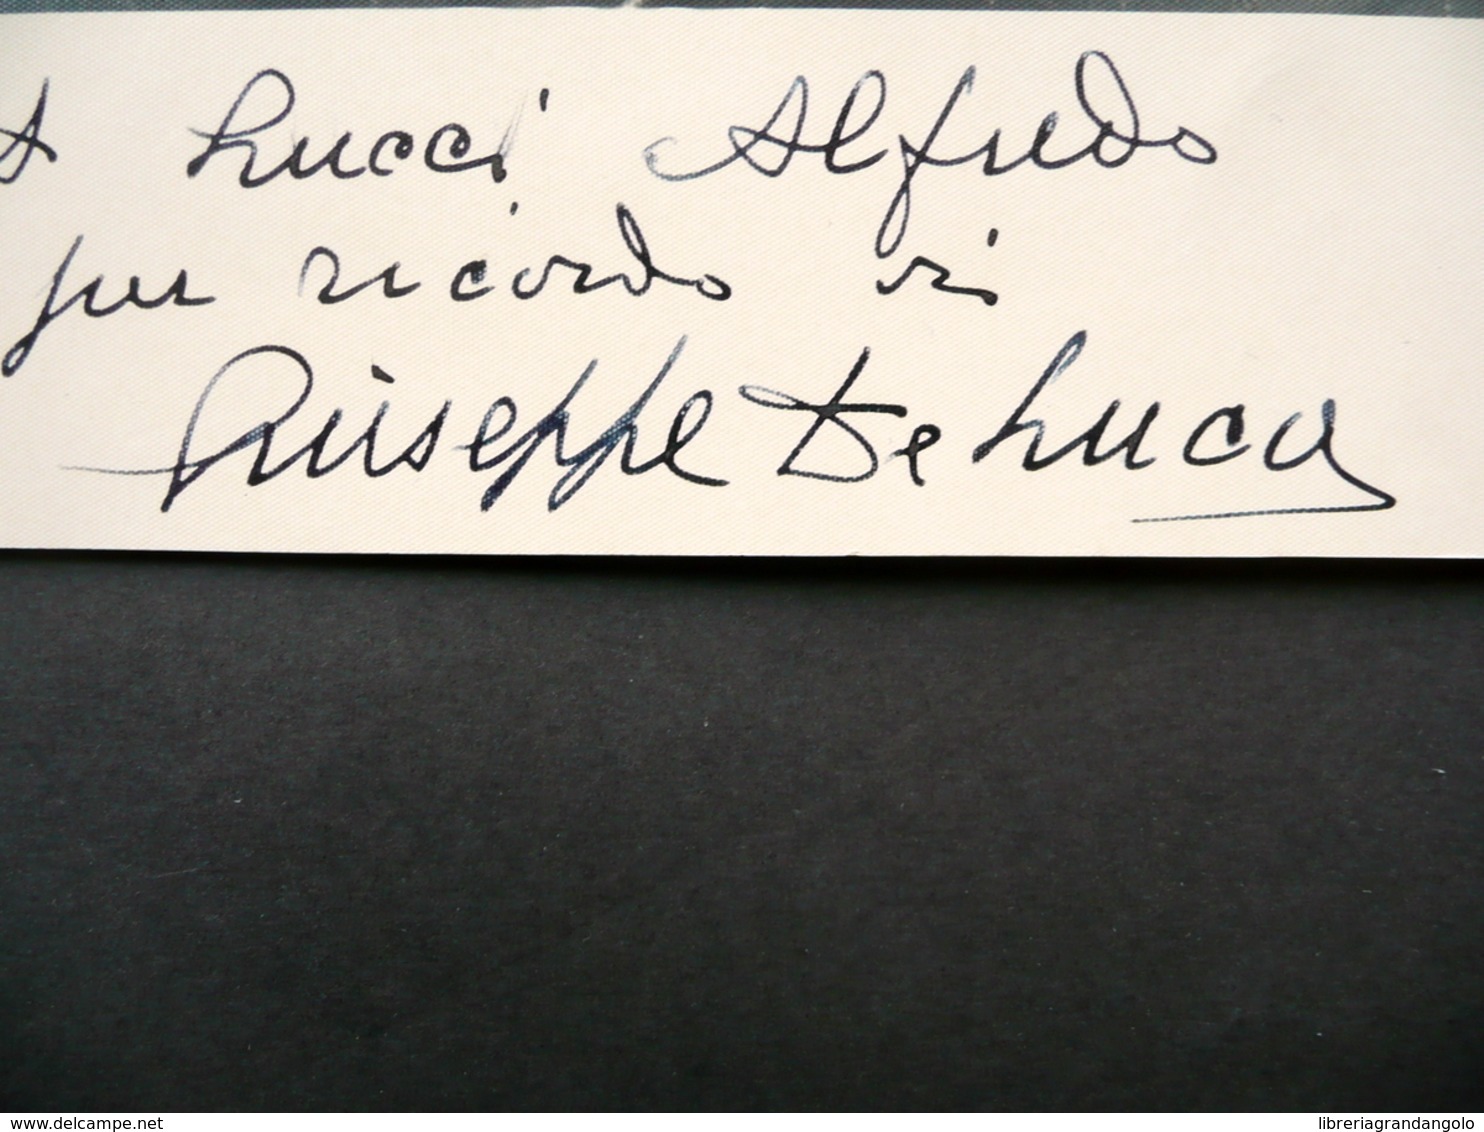 A Lucci Alfredo
per ricordo di
Giuseppe De Luca
www.delcampe.net
libreriagrandangolo